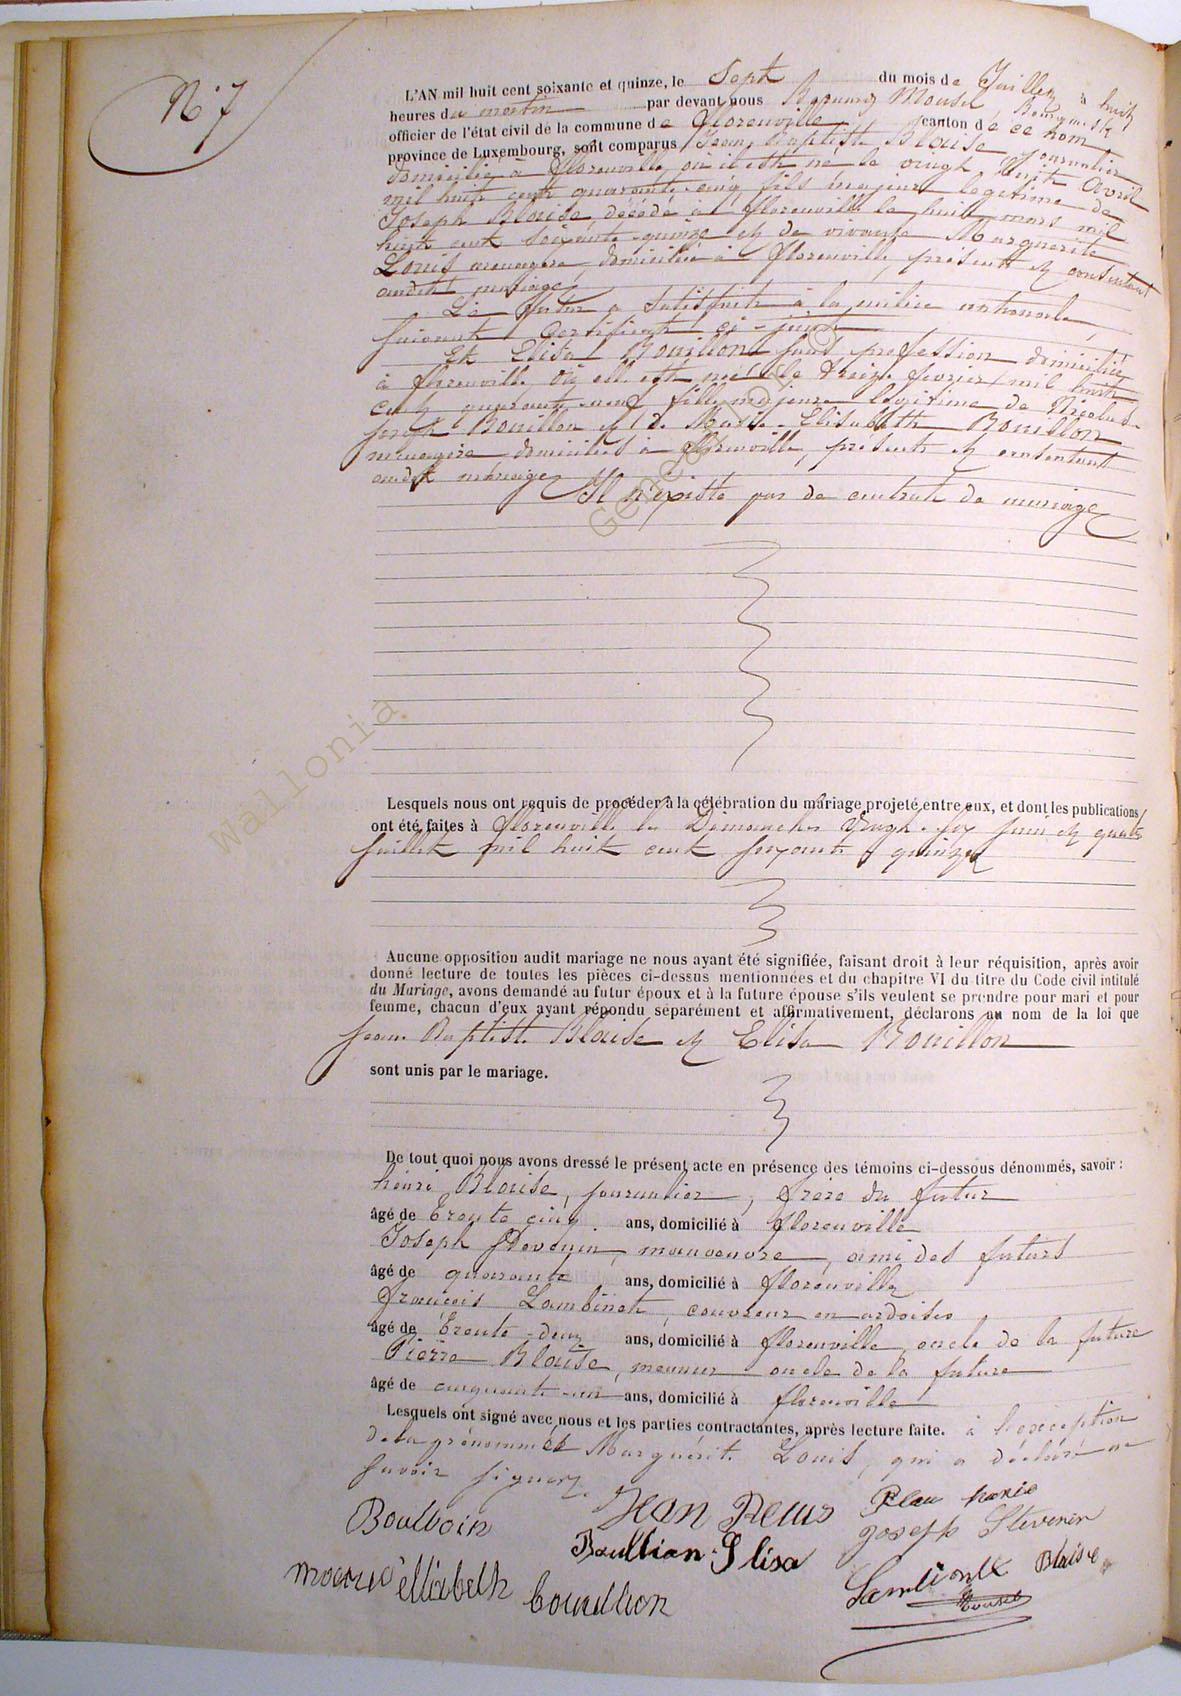 N° 7
L'AN mil huit cent soixante et quinze, le Sept du mois de Juillet à huit
heures du matin par devant nous Mousel, Bourgmestre
officier de l'état civil de la commune de Florenville canton de ce nom
province de Luxembourg, sont comparus Jean Baptiste Blaise journalier
domicilié à Florenville où il est né le vingt huit Avril
mil huit cent quarante-cinq, fils majeur légitime de
Joseph Blaise, décédé à Florenville le huit mars mil
huit cent soixante-quinze et de vivante Marguerite
Louis ménagère, domiciliée à Florenville, présente et consentant
audit mariage
Le futur a satisfait à la milice nationale,
suivant certificat ci-joint
Et Elisa Bouillon sans profession domiciliée
à Florenville où elle est née le treize février mil huit
cent quarante neuf fille majeure légitime de Nicolas
Joseph Bouillon et de Marie-Elisabeth Bouillon
ménagère domiciliés à Florenville, présents et consentant
audit mariage
Il n'existe pas de contrat de mariage
Geneanet.org ©
Wallonia
Lesquels nous ont requis de procéder à la célébration du mariage projeté entre eux, et dont les publications
ont été faites à Florenville les Dimanches Vingt-six juin et quatre
juillet mil huit cent soixante-quinze
Aucune opposition audit mariage ne nous ayant été signifiée, faisant droit à leur réquisition, après avoir
donné lecture de toutes les pièces ci-dessus mentionnées et du chapitre VI du titre du Code civil intitulé
du Mariage, avons demandé au futur époux et à la future épouse s'ils veulent se prendre pour mari et pour
femme, chacun d'eux ayant répondu séparément et affirmativement, déclarons au nom de la loi que
Jean Baptiste Blaise et Elisa Bouillon
sont unis par le mariage.
De tout quoi nous avons dressé le présent acte en présence des témoins ci-dessous dénommés, savoir :
henri Blaise, journalier, frère du futur
âgé de trente cinq ans, domicilié à Florenville
Joseph Stevenin, manoeuvre, ami des futurs
âgé de quarante ans, domicilié à Florenville
François Lambinet, couvreur en ardoises
âgé de trente-deux ans, domicilié à Florenville, oncle de la future
Pierre Blaise, meunier oncle de la future
âgé de cinquante-un ans, domicilié à Florenville
Lesquels ont signé avec nous et les parties contractantes, après lecture faite. à l'exception
de la prénommée Marguerite Louis, qui a déclaré ne
savoir signer.
Jean
Joseph Stevenin
Boullion Elisa
Blaise
marie ellisbeth bouullion
Mousel